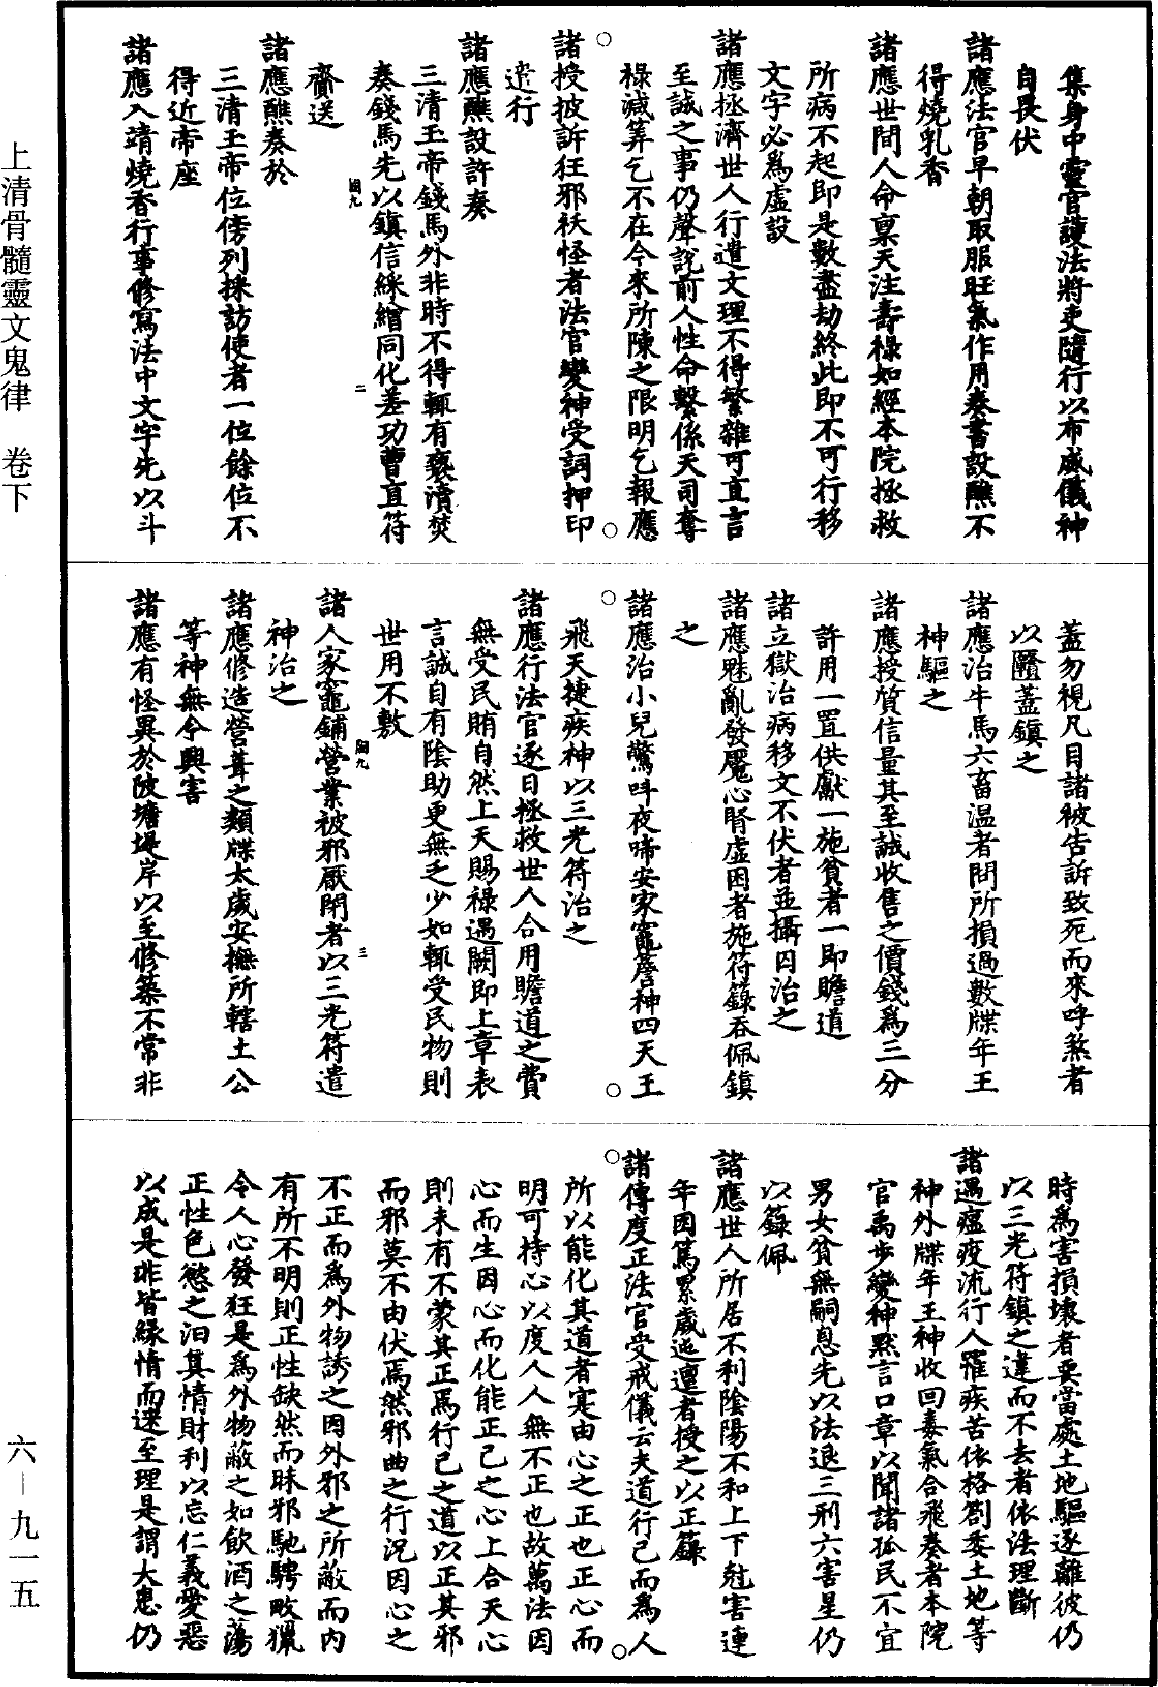 集身中靈官護法將吏隨行以布威儀神
自畏伏
諸應法官早朝取服旺氣作用奏書設醮不
得燒乳香
諸應世間人命稟天注壽祿如經本院拯救
所病不起即是數盡劫終此即不可行移
文字必為虛設
諸應拯濟世人行遣文理不得繁雜可直言
至誠之事仍聲說前人性命繫係天司奪
祿減筭乞不在今來所陳之限明乞報應
諸授披訴狂邪祅怪者法官變神受詞押印
遣行
諸應醮設許奏
三清玉帝錢馬外非時不得輒有褻瀆焚
奏錢馬先以鎮信綵繒同化差功曹直符
齎送
諸應醮奏於
三清玉帝位傍列採訪使者一位餘位不
得近帝座
諸應入靖燒香行事修寫法中文字先以斗
蓋勿視凡目諸被告訴致死而來呼煞者
以蓋鎮之
諸應治牛馬六畜溫者問所損過數牒年王
神驅之
諸應授質信量其至誠收售之價錢為三分
許用一置供獻一施貧者一即贍道
諸立獄治病移文不伏者並攝囚治之
諸應魅亂發魘心腎虛困者施符籙吞佩鎮
之
諸應治小兒驚呌夜啼安家竈簷神四天王
飛天捷疾神以三光符治之
諸應行法官逐日拯救世人合用贍道之費
無受民賄自然上天賜祿遇闕即上章表
言誠自有陰助更無乏少如輒受民物則
世用不敷
諸人家竈鋪營業被邪厭閉者以三光符遣
神治之
諸應修造營葺之類牒太歲安撫所轄土公
等神無令興害
諸應有怪異於陂塘堤岸以至修築不常非
時為害損壞者要當處土地驅逐離彼仍
以三光符鎮之違而不去者依法理斷
諸遇瘟疫流行人罹疾苦依格劄委土地等
神外牒年王神收回毒氣合飛奏者本院
官禹步變神默言口章以聞諸孤民不宜
男女貧無嗣息先以法退三刑六害星仍
以籙佩
諸應世人所居不利陰陽不和上下尅害連
年因篤累歲迍邅者授之以正籙
諸傳度正法官受戒儀云夫道行己而為人
所以能化其道者寔由心之正也正心而
明可持心以度人人無不正也故萬法因
心而生因心而化能正己之心上合天心
則未有不蒙其正焉行己之道以正其邪
而邪莫不由伏焉然邪曲之行況因心之
不正而為外物誘之因外邪之所蔽而內
有所不明則正性缺然而昧邪馳騁畋獵
令人心發狂是為外物蔽之如飲酒之蕩
正性色慾之汩其情財利以忘仁義愛惡
以成是非皆緣情而遷至理是謂大患仍
國九
二
國九
三
上清骨髓靈文鬼律 卷下
六－九一五